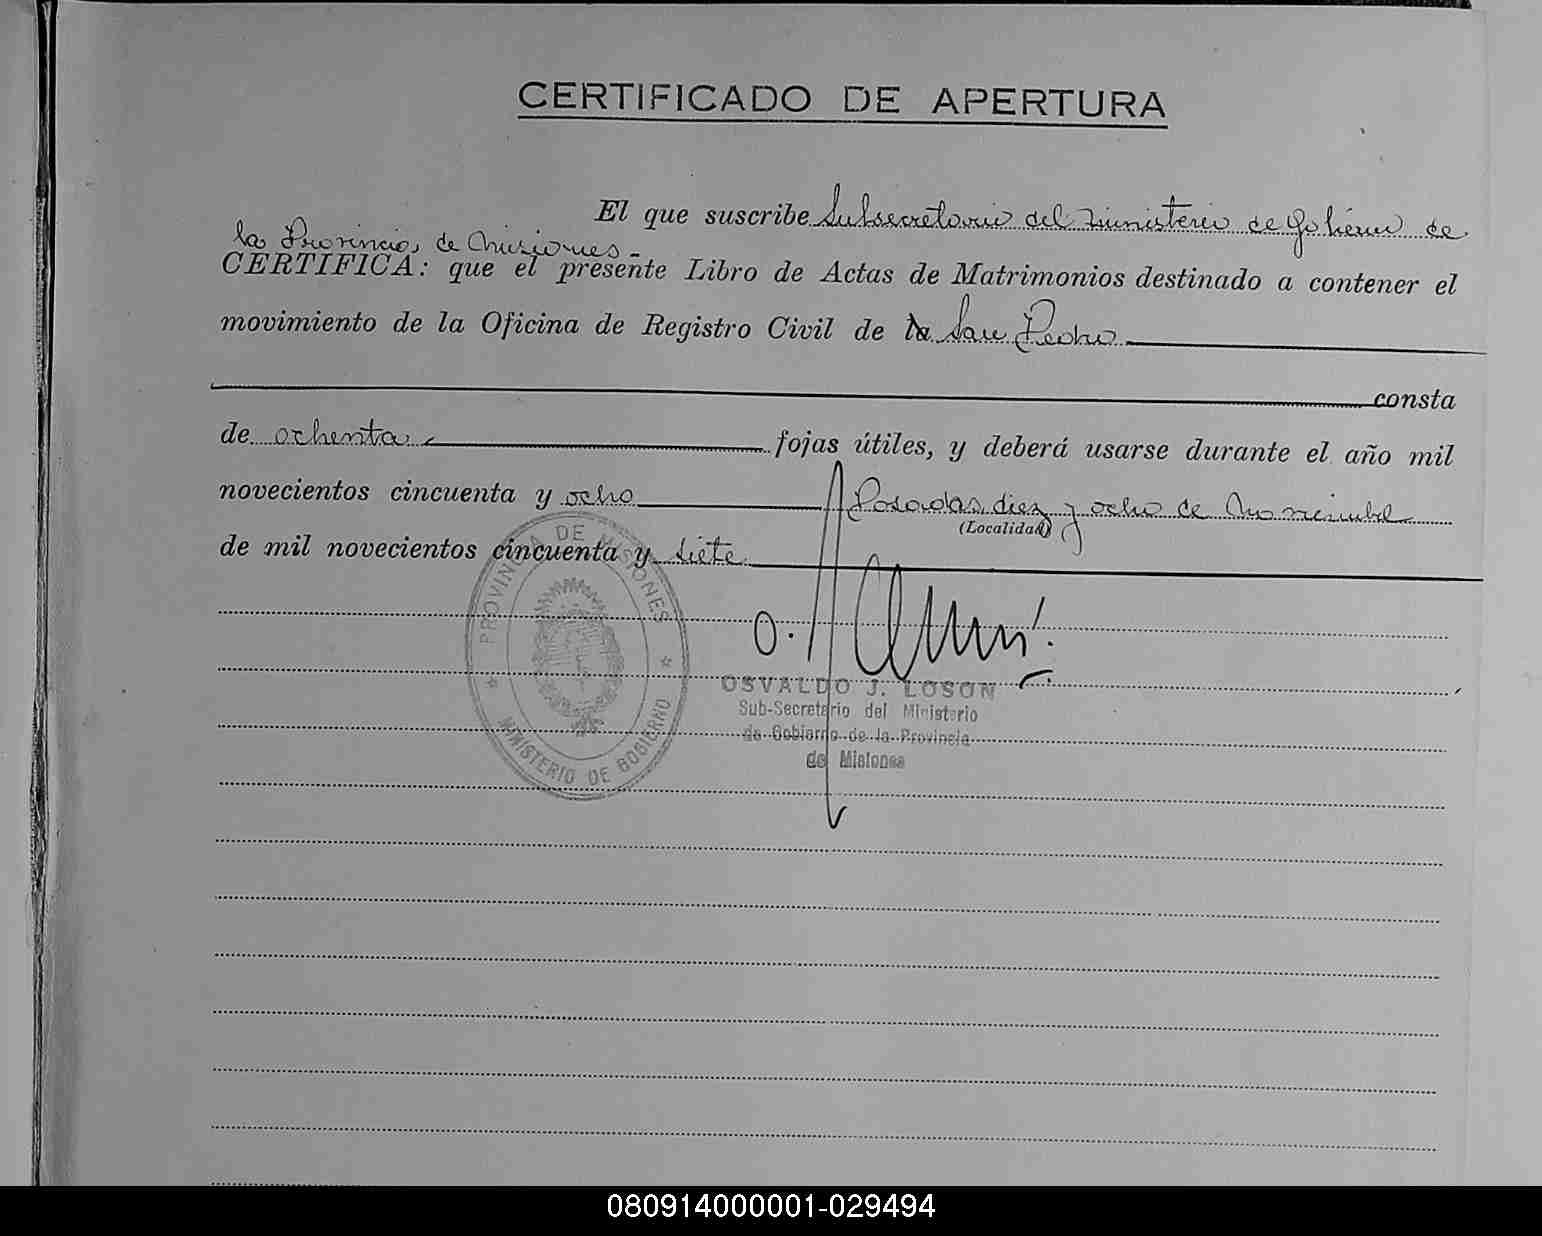 CERTIFICADO DE APERTURA
El que suscribe Subsecretario del Ministerio de Gobierno de
la Provincia de Misiones.-
CERTIFICA: que el presente Libro de Actas de Matrimonios destinado a contener el
movimiento de la Oficina de Registro Civil de la San Pedro
consta
de ochenta fojas útiles, y deberá usarse durante el año mil
novecientos cincuenta y ocho Posadas, diez y ocho de Noviembre
(Localidad)
de mil novecientos cincuenta y siete
PROVINCIA DE MISIONES
MINISTERIO DE GOBIERNO
OSVALDO J. LOSON
Sub-Secretario del Ministerio
de Gobierno de la Provincia
de Misiones
080914000001-029494